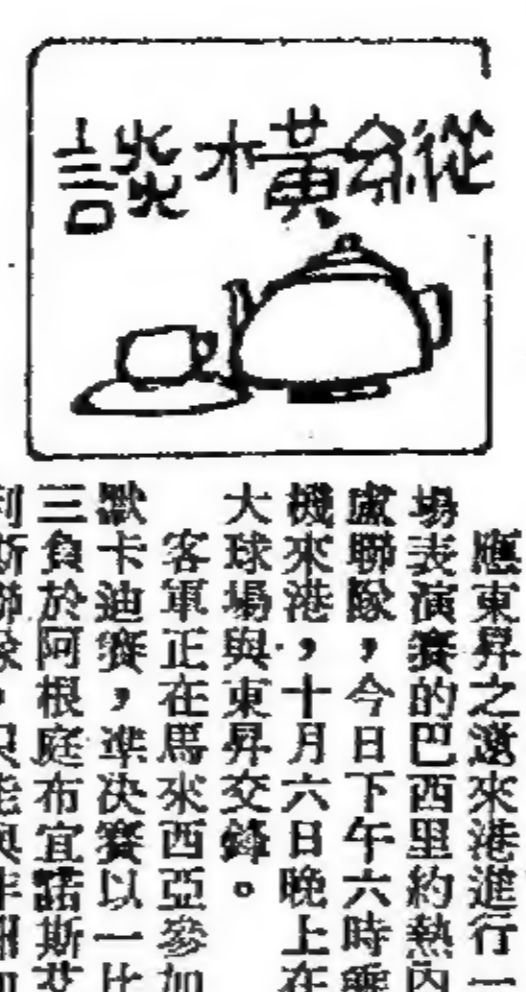 縱橫談
應東昇之邀來港進行一
場表演賽的巴西里約熱內
盧聯隊，今日下午六時乘
機來港，十月六日晚上在
大球場與東昇交鋒。
客軍正在馬來西亞參加
默卡迪賽，準決賽以一比
三負於阿根庭布宜諾斯艾
利斯聯隊，只能與非洲加